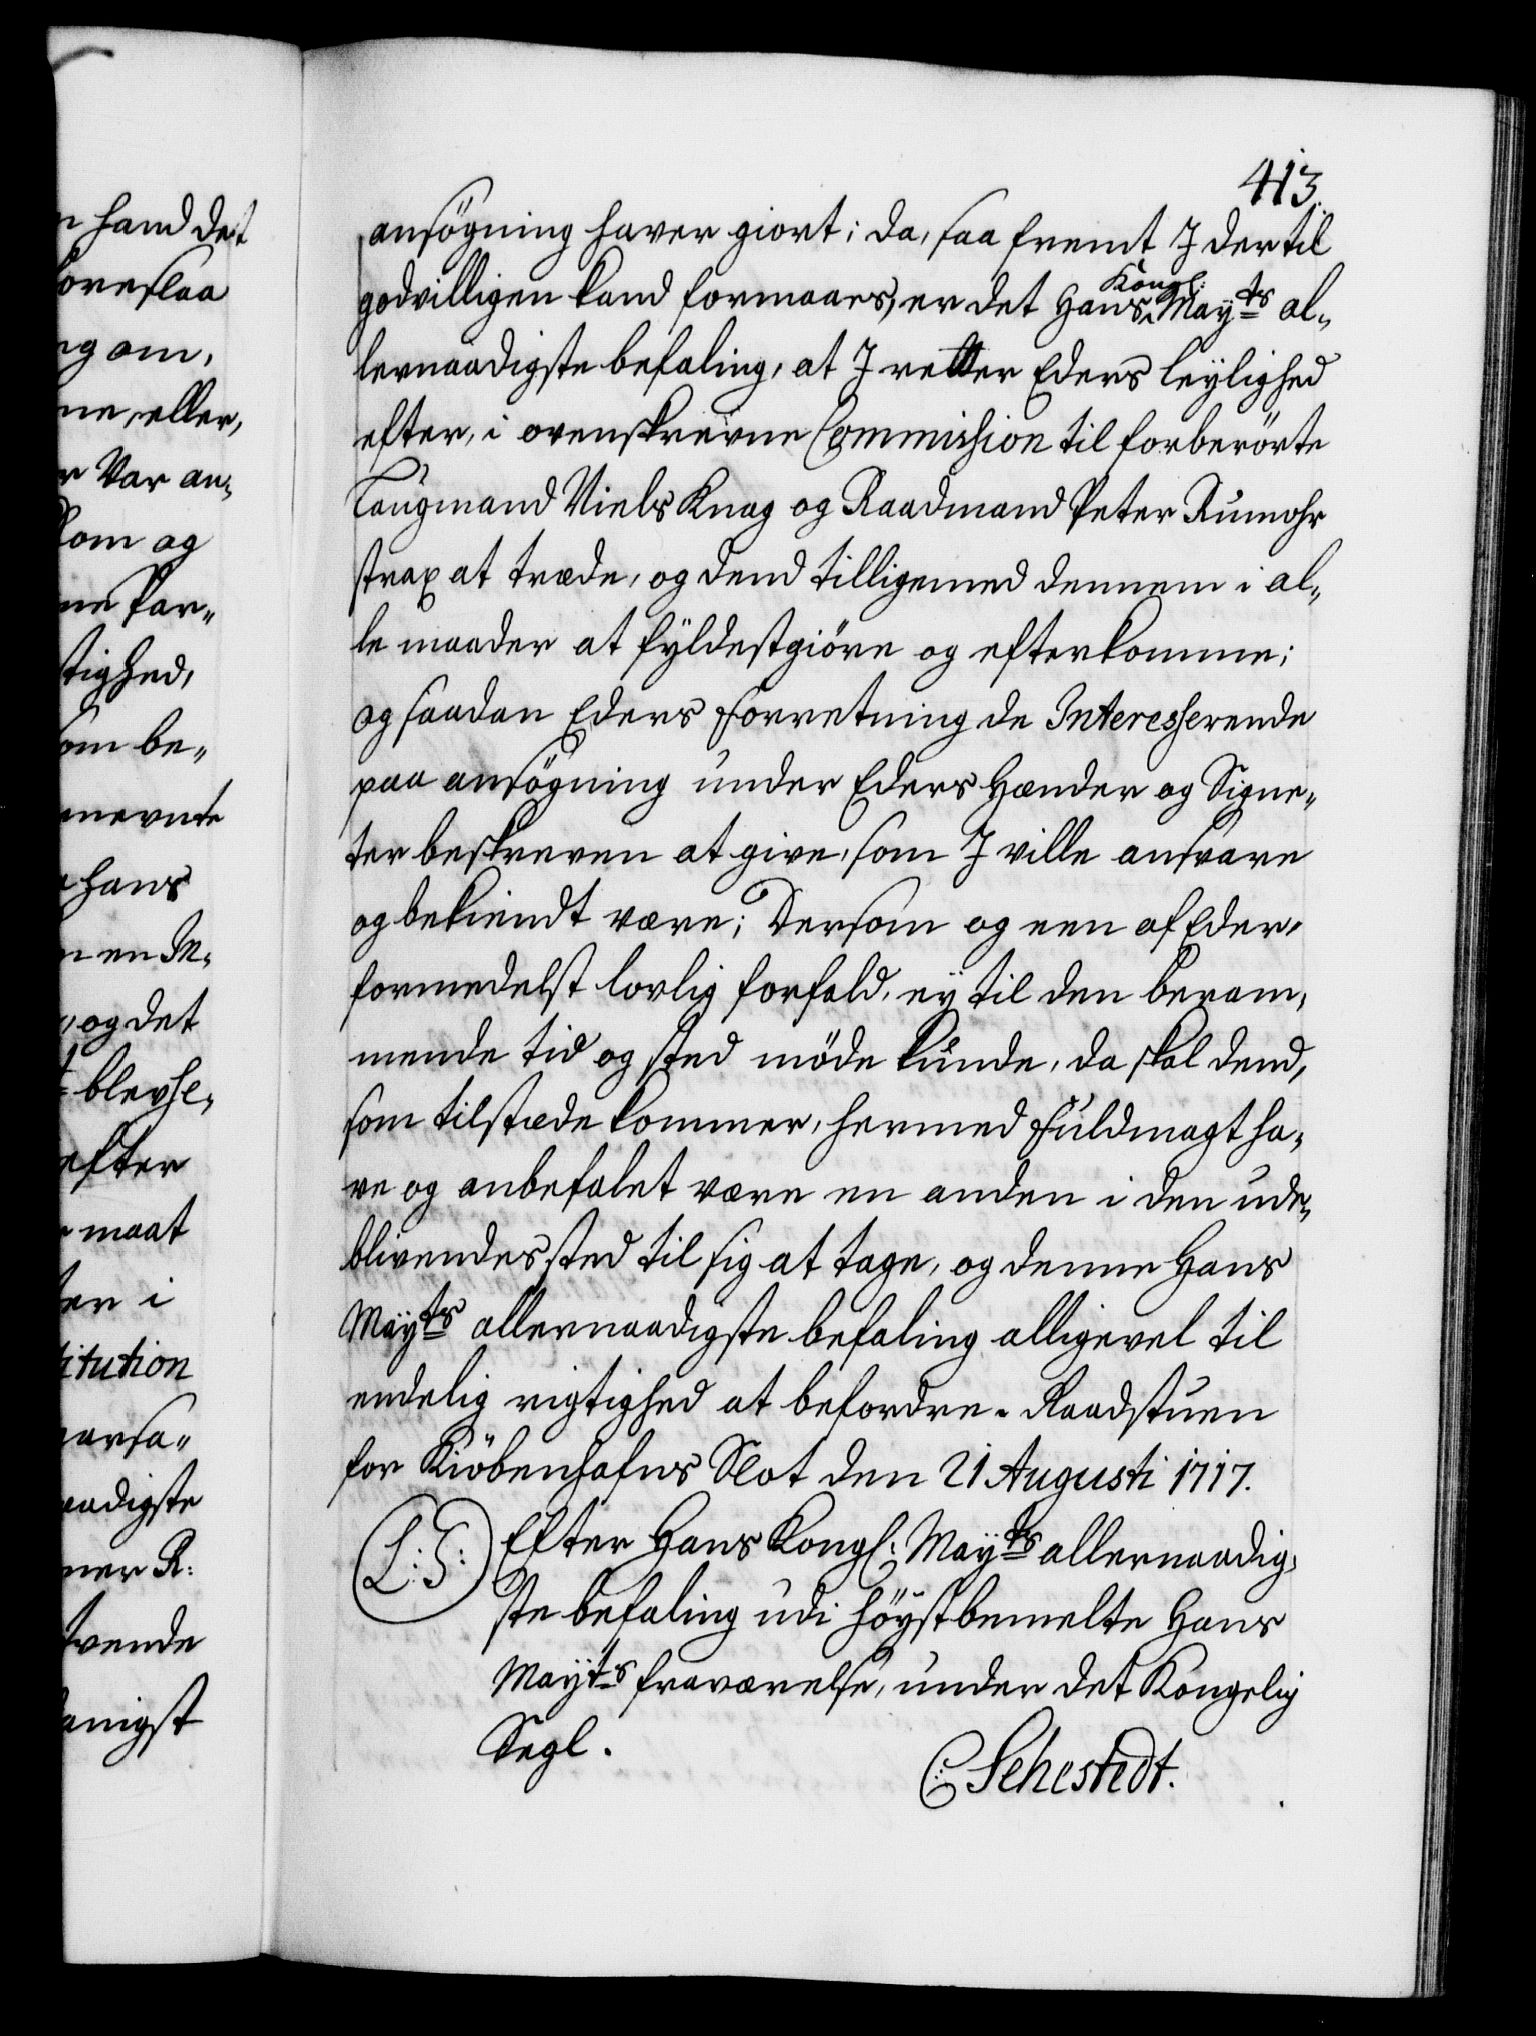 413.
ansøgning haver giort; da, saa fremt I dertil
godvilligen kand formaaes, er det Hans Kongl: Mayts al-
lernaadigste befaling, at I retter Eders leylighed
efter, i ovenskrevne Commission til forberørte
Laugmand Niels Knag og Raadmand Peter Rumohr
strax at træde, og dend tilligemed dennem i al-
le maader at fyldestgiøre og efterkomme;
og saadan Eders forretning de Interesserende
paa ansøgning under Eders Hænder og Signe-
ter beskreven at give, som I ville ansvare
og bekiendt være; Dersom og een af Eder,
formedelst lovlig forfald, ey til den beram-
mende tid og sted møde kunde, da skal dend,
som tilstæde kommer, hermed fuldmagt ha-
ve og anbefalet være en anden i den ude-
blivendes sted til sig at tage, og denne Hans
Mayts allernaadigste befaling alligevel til
endelig rigtighed at befordre. Raadstuen
for Kiøbenhafns Slot den 21 Augusti 1717.
(L:S:) Efter Hans Kongl: Mayts allernaadig-
ste befaling udi høystbemelte Hans
Mayts fraværelse, under det Kongelig
Segl.
C: Sehestedt.
hand det
foreslaa
ng om,
ne, eller,
r var an-
kom og
ne Par-
tighed,
som be-
nevnte
hans
n en In-
, og det
blevse,
efter
maat
ter i
titution
narsa-
aadigste
ner R:
tvende
danigst